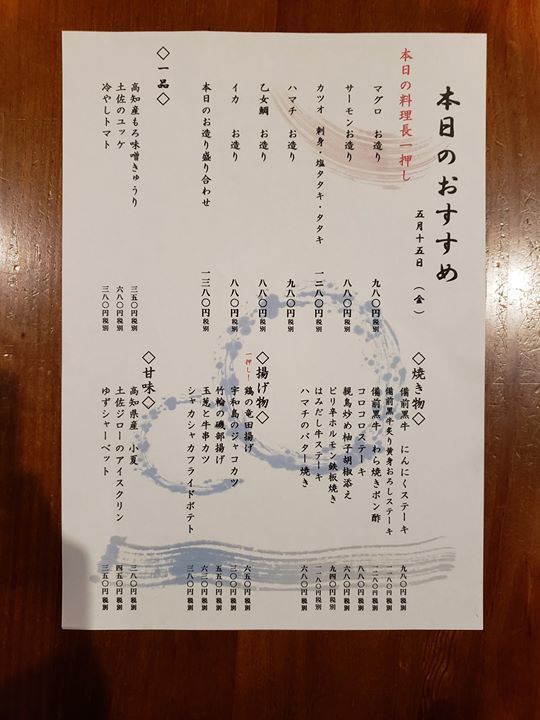 本日のおすすめ
五月十五日（金）
本日の料理長一押し
マグロ　お造り　九八〇円税別
サーモンお造り　八八〇円税別
カツオ　刺身・塩タタキ・タタキ　一二八〇円税別
ハマチ　お造り　九八〇円税別
乙女鯛　お造り　八八〇円税別
イカ　お造り　八八〇円税別
本日のお造り盛り合わせ　一三八〇円税別
◇一品◇
高知産もろ味噌きゅうり　三五〇円税別
土佐のユッケ　六八〇円税別
冷やしトマト　三八〇円税別
◇焼き物◇
備前黒牛　にんにくステーキ　九八〇円税別
備前黒牛炙り黄身おろしステーキ　一一八〇円税別
備前黒牛　わら焼きポン酢　一二八〇円税別
コロコロステーキ　八八〇円税別
親鳥炒め柚子胡椒添え　六八〇円税別
ピリ辛ホルモン鉄板焼き　九四〇円税別
はみだし牛ステーキ　一一八〇円税別
ハマチのバター焼き　六八〇円税別
◇揚げ物◇
一押し！
鶏の竜田揚げ　六五〇円税別
宇和島のジャコカツ　三〇〇円税別
竹輪の磯部揚げ　五五〇円税別
玉葱と牛串カツ　六三〇円税別
シャカシャカフライドポテト　三五〇円税別
◇甘味◇
高知県産　小夏　三八〇円税別
土佐ジローのアイスクリン　四五〇円税別
ゆずシャーベット　三五〇円税別